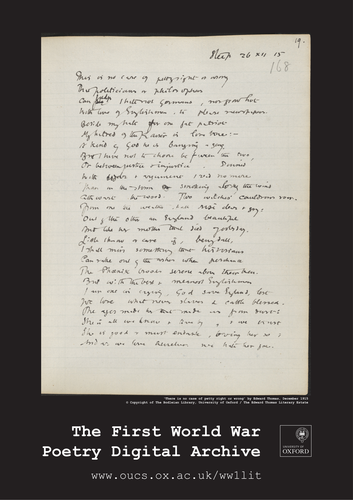 19.
Steep 26 XII 15
168
This is no case of petty right or wrong
That politicians or philosophers
Can judge. I hate not Germans, nor grow hot
With love of Englishmen, to please newspapers.
Beside my hate for one fat patriot
My hatred of the Kaiser is love true:—
A kind of god he is banging a gong.
But I have not to choose between the two,
Or between justice & injustice. Dinned
With war & argument I read no more
Than in the storm smoking along the wind
Athwart the wood. Two witches' cauldrons roar.
From one the weather shall rise clear & gay;
Out of the other an England beautiful
And like her mother that died yesterday.
Little I know or care if, being dull,
I shall miss something that historians
Can rake out of the ashes when perchance
The Phoenix broods serene above their ken.
But with the best & meanest Englishmen
I am one in crying, God save England, lest
We lose what never slaves & cattle blessed.
The ages made her that made us from dust:
She is all we know & live by, & we trust
She is good & must endure, loving her so;
And as we love ourselves we hate her foe.
'There is no case of petty right or wrong' by Edward Thomas, December 1915
© Copyright of The Bodleian Library, University of Oxford / The Edward Thomas Literary Estate
The First World War
Poetry Digital Archive
www.oucs.ox.ac.uk/ww1lit
UNIVERSITY OF
OXFORD